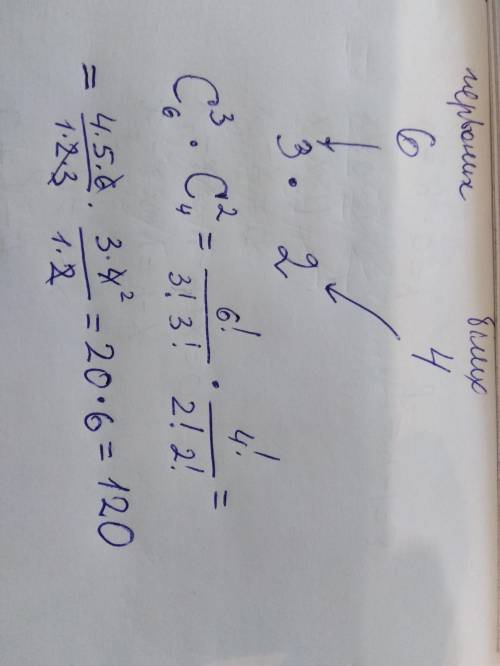 червоних білих
6 4
3 · 2
C₆³ · C₄² = 6!/(3! 3!) · 4!/(2! 2!) =
= (4·5·6)/(1·2·3) · (3·4²)/(1·2) = 20·6 = 120